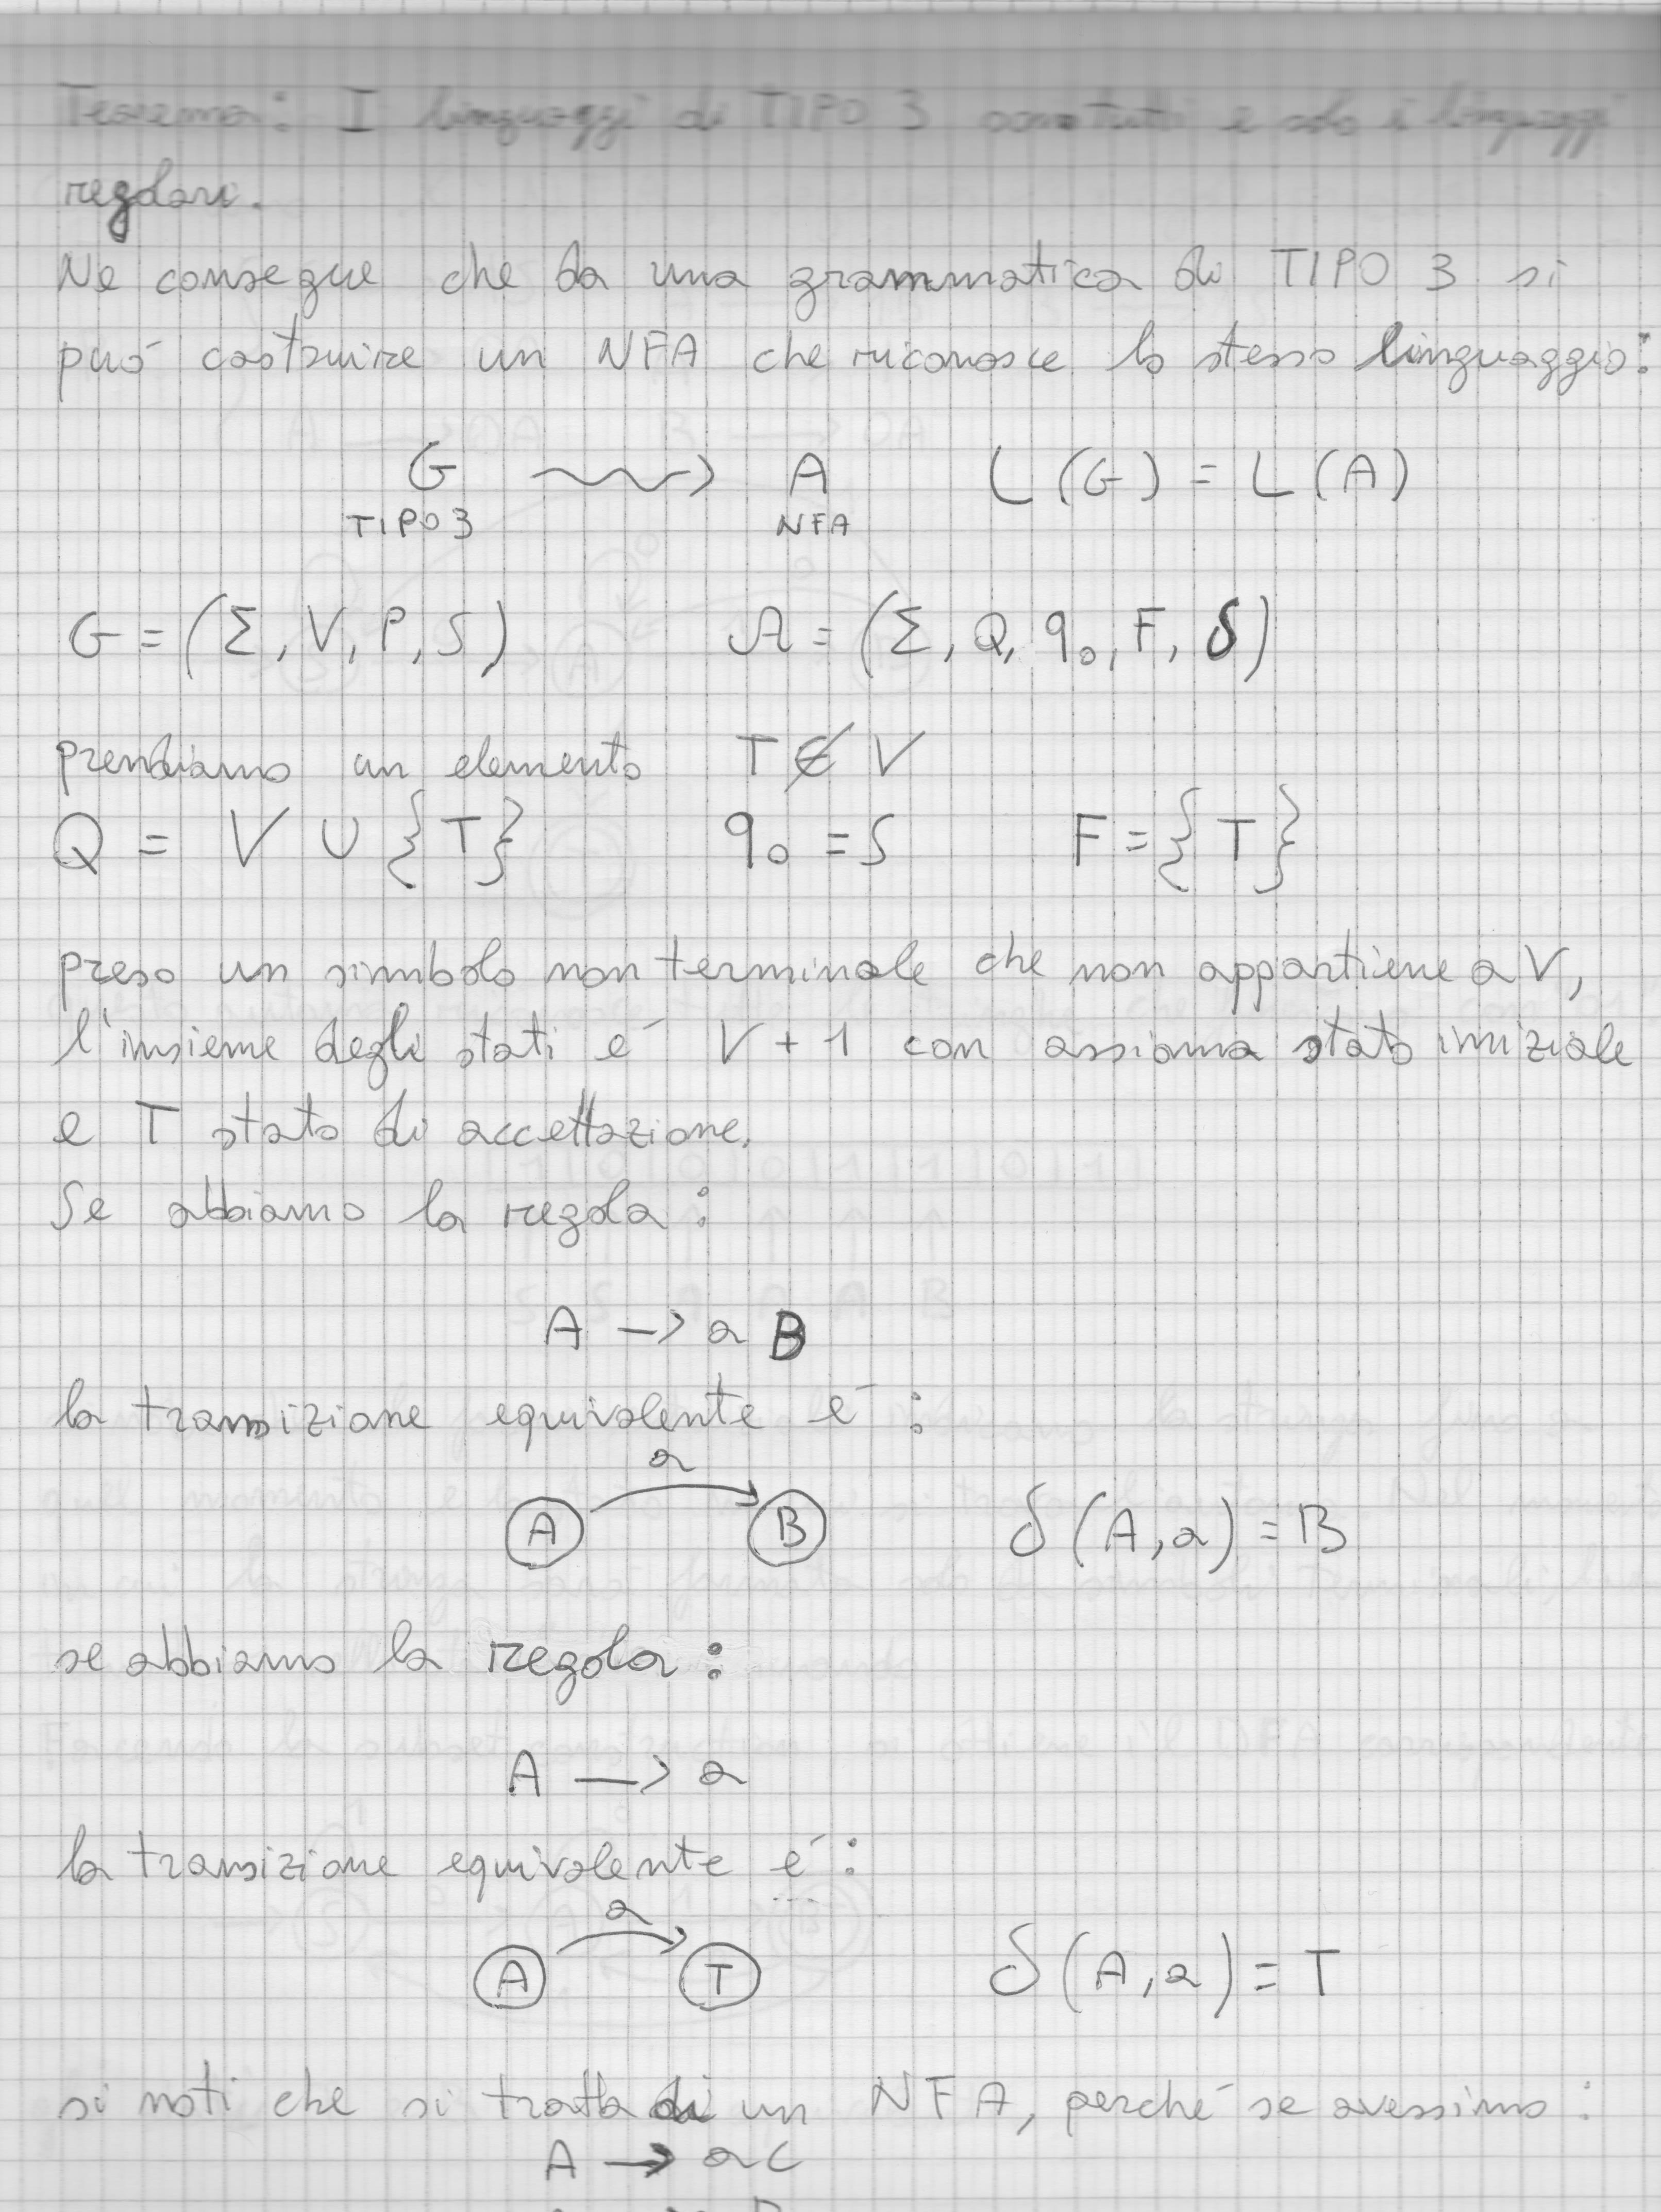 Teorema: I linguaggi di TIPO 3 sono tutti e solo i linguaggi
regolari.
Ne consegue che da una grammatica di TIPO 3 si
puó costruire un NFA che riconosce lo stesso linguaggio:
G ⟿ A L(G) = L(A)
TIPO 3 NFA
G = (Σ, V, P, S) A = (Σ, Q, q₀, F, δ)
prendiamo un elemento T ∉ V
Q = V ∪ {T} q₀ = S F = {T}
preso un simbolo non terminale che non appartiene a V,
l'insieme degli stati é V + 1 con assioma stato iniziale
e T stato di accettazione.
Se abbiamo la regola:
A → a B
la transizione equivalente é:
a
A B δ(A, a) = B
se abbiamo la regola:
A → a
la transizione equivalente é:
a
A T δ(A, a) = T
si noti che si tratta di un NFA, perché se avessimo:
A → aC